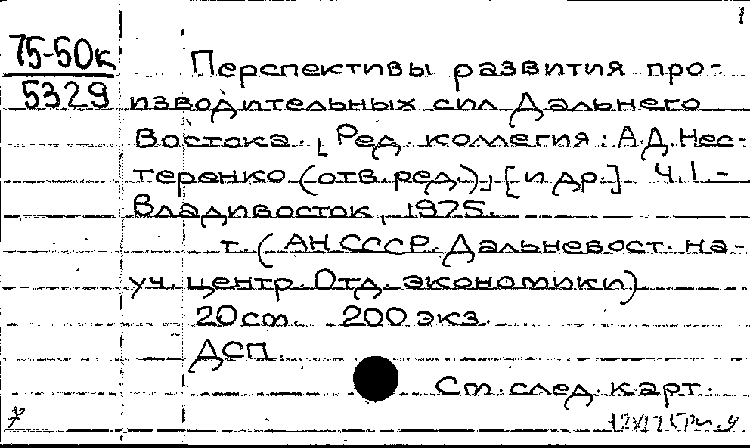 1
75-50к
5329
Перспективы развития про-
изводительных сил Дальнего
Востока. [Ред. коллегия: А.Д. Нес-
теренко (отв. ред.), [и др.] Ч.1.-
Владивосток, 1975.
т. (АН СССР. Дальневост. на-
уч. центр. Отд. экономики)
20 см. 200 экз.
ДСП.
См. след. карт.